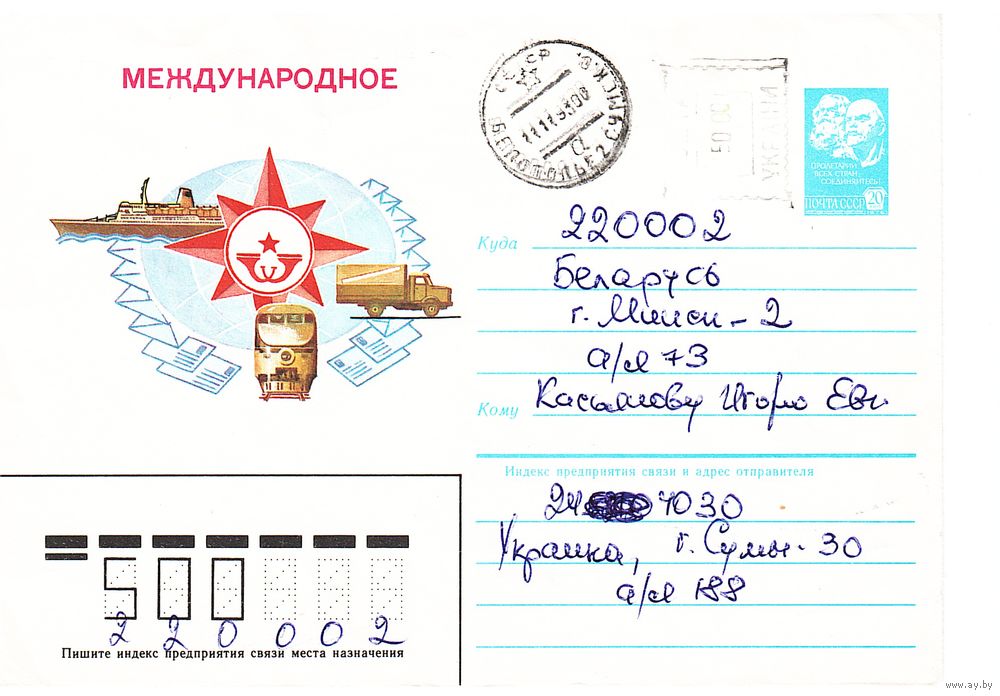 МЕЖДУНАРОДНОЕ
СССР
11 11 93 00
50 00
УКРАЇНИ
ПРОЛЕТАРИИ
ВСЕХ СТРАН,
СОЕДИНЯЙТЕСЬ!
ПОЧТА СССР 20
Куда 220002
Беларусь
г. Минск-2
а/я 73
Кому Касьянову Игорю Евг
Индекс предприятия связи и адрес отправителя
24 4030
Украина, г. Сумы-30
а/я 188
500
220002
Пишите индекс предприятия связи места назначения
www.ay.by